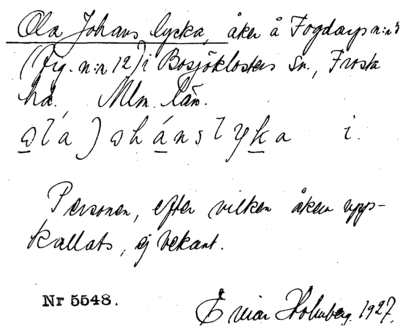 Ola Johans lycka, åker å Fogdarps n:r 5
(Fig. n:n 12) i Bosjöklosters sn., Frosta
hd. Mlm. län.
i.
Personen, efter vilken åkern upp-
kallats, ej bekant.
Nr 5548.
Einar Holmberg. 1927.